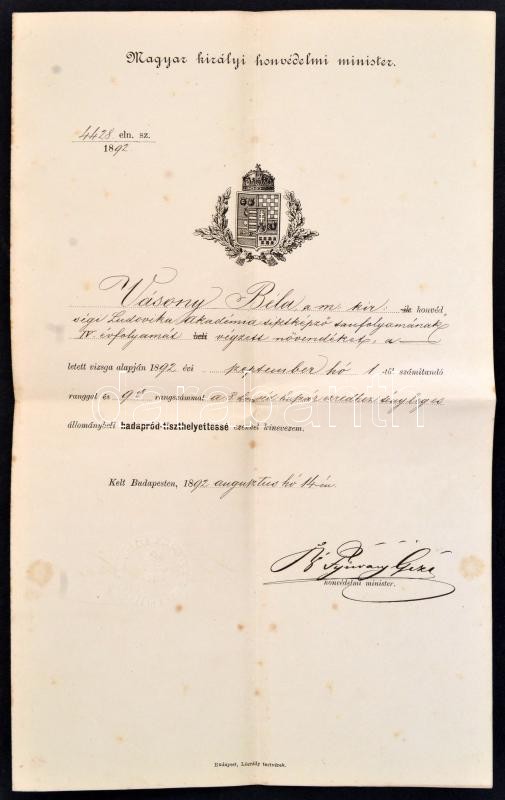 Magyar királyi honvédelmi minister.
4428 eln. sz.
1892
Vásony Béla a m. kir. honvéd
ségi Ludovika Akadémia tisztképző tanfolyamának
IV. évfolyamát beli végzett növendéket, a
letett vizsga alapján 1892 évi szeptember hó 1 től számítandó
ranggal és 9es rangszámmal a honvéd huszár ezredhez tényleges
állománybeli hadapród-tiszthelyettessé ezennel kinevezem.
Kelt Budapesten, 1892 augusztus hó 14 én.
Fejérváry Géza
honvédelmi minister.
Budapest, Légrády testvérek.
darabanth.com